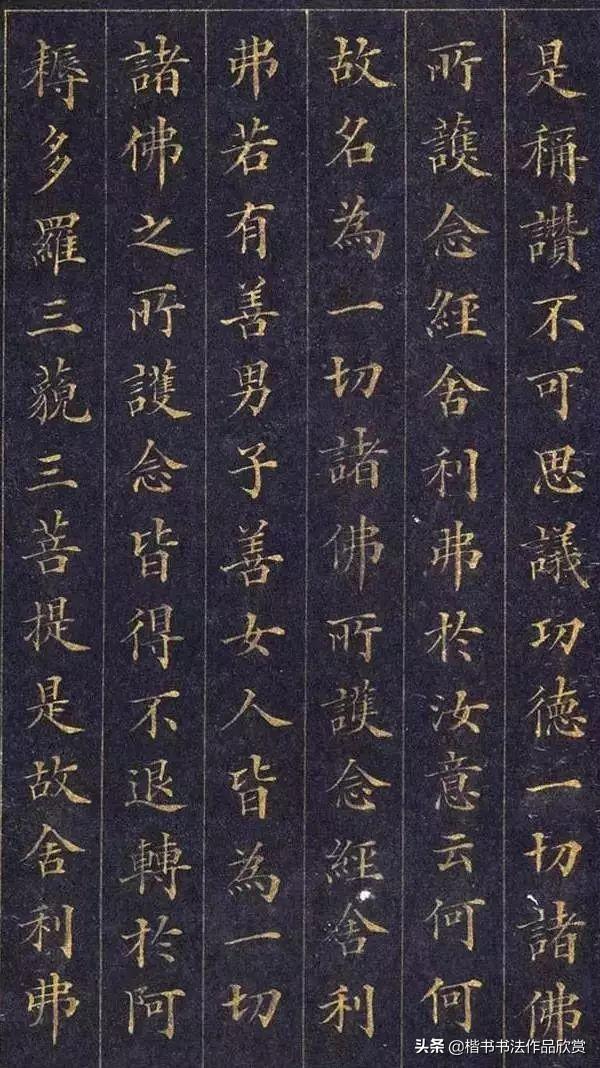 是稱讚不可思議功德一切諸佛
所護念經舍利弗於汝意云何何
故名為一切諸佛所護念經舍利
弗若有善男子善女人皆為一切
諸佛之所護念皆得不退轉於阿
耨多羅三藐三菩提是故舍利弗
头条 @楷书书法作品欣赏